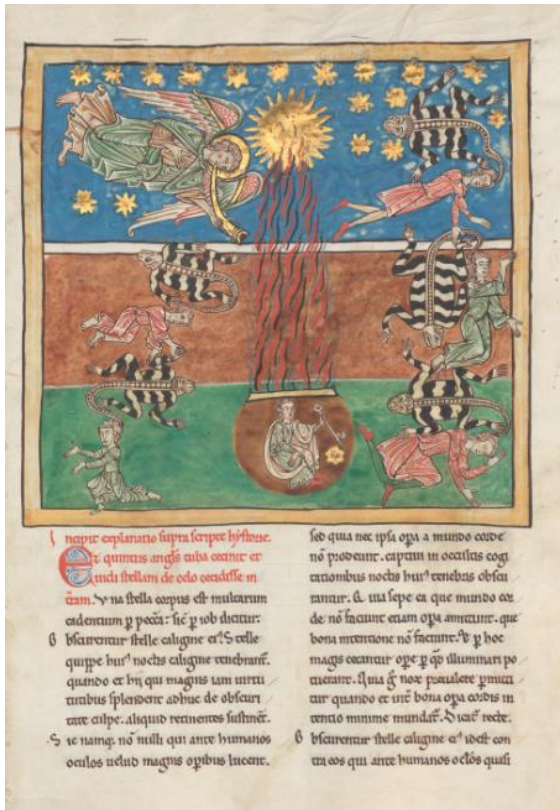 Incipit explanatio supra scripte hystorie.
Et quintus angls tuba cecinit et
vidi stellam de celo cecidisse in
tram. Vna stella corpus est multarum
cadentium p pecca: sic p iob dicitur:
Obscurentur stelle caligine ei. Stelle
quippe hui noctis caligine tenebrant.
quando et hii qui magnis iam uirtu
tibus splendent adhuc de obscuri
tate culpe. aliquid retinentes sustinet.
Sic namq. nō nulli qui ante humanos
oculos uelud magnis opibus lucent.
sed quia nec ipsa opa a mundo corde
nō prodeunt. captiui in occultis cogi
tationibus noctis hui tenebris obscu
rantur. Qui sepe ea que mundo cor
de nō faciunt etiam opa amittunt. que
bona intentione nō faciunt. Et p hoc
magis cecantur ope p qd illuminari po
tuerant. Quia g nox preualere pmitti
tur quando et int bona opa cordis in
tentio minime mundat. Dicat recte.
Obscurentur stelle caligine ei idest con
tra eos qui ante humanos oclos quasi